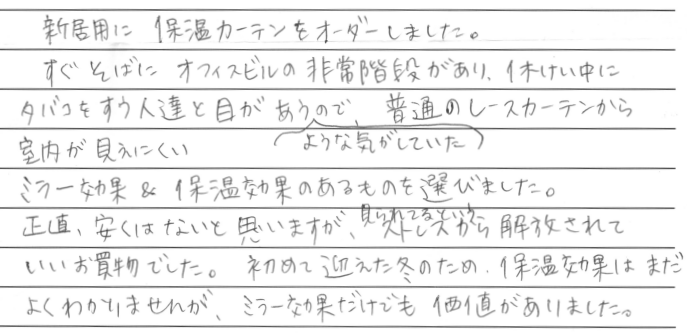 新居用に 保温カーテンをオーダーしました。
すぐそばに オフィスビルの非常階段があり、休けい中に
タバコをすう人達と目があうので、普通のレースカーテンから
室内が見えにくい (ような気がしていた)
ミラー効果 & 保温効果のあるものを選びました。
見られてるという
正直、安くはないと思いますが、ストレスから解放されて
いいお買物でした。 初めて迎えた冬のため、保温効果はまだ
よくわかりませんが、ミラー効果だけでも 価値がありました。